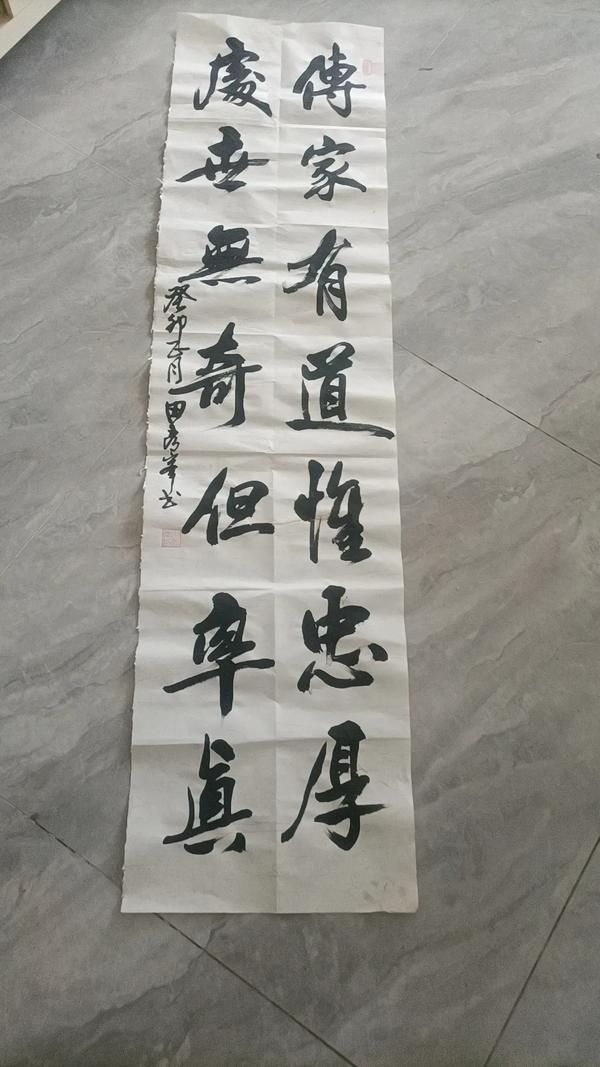 傳家有道惟忠厚
處世無奇但率真
癸卯正月田彥峯书